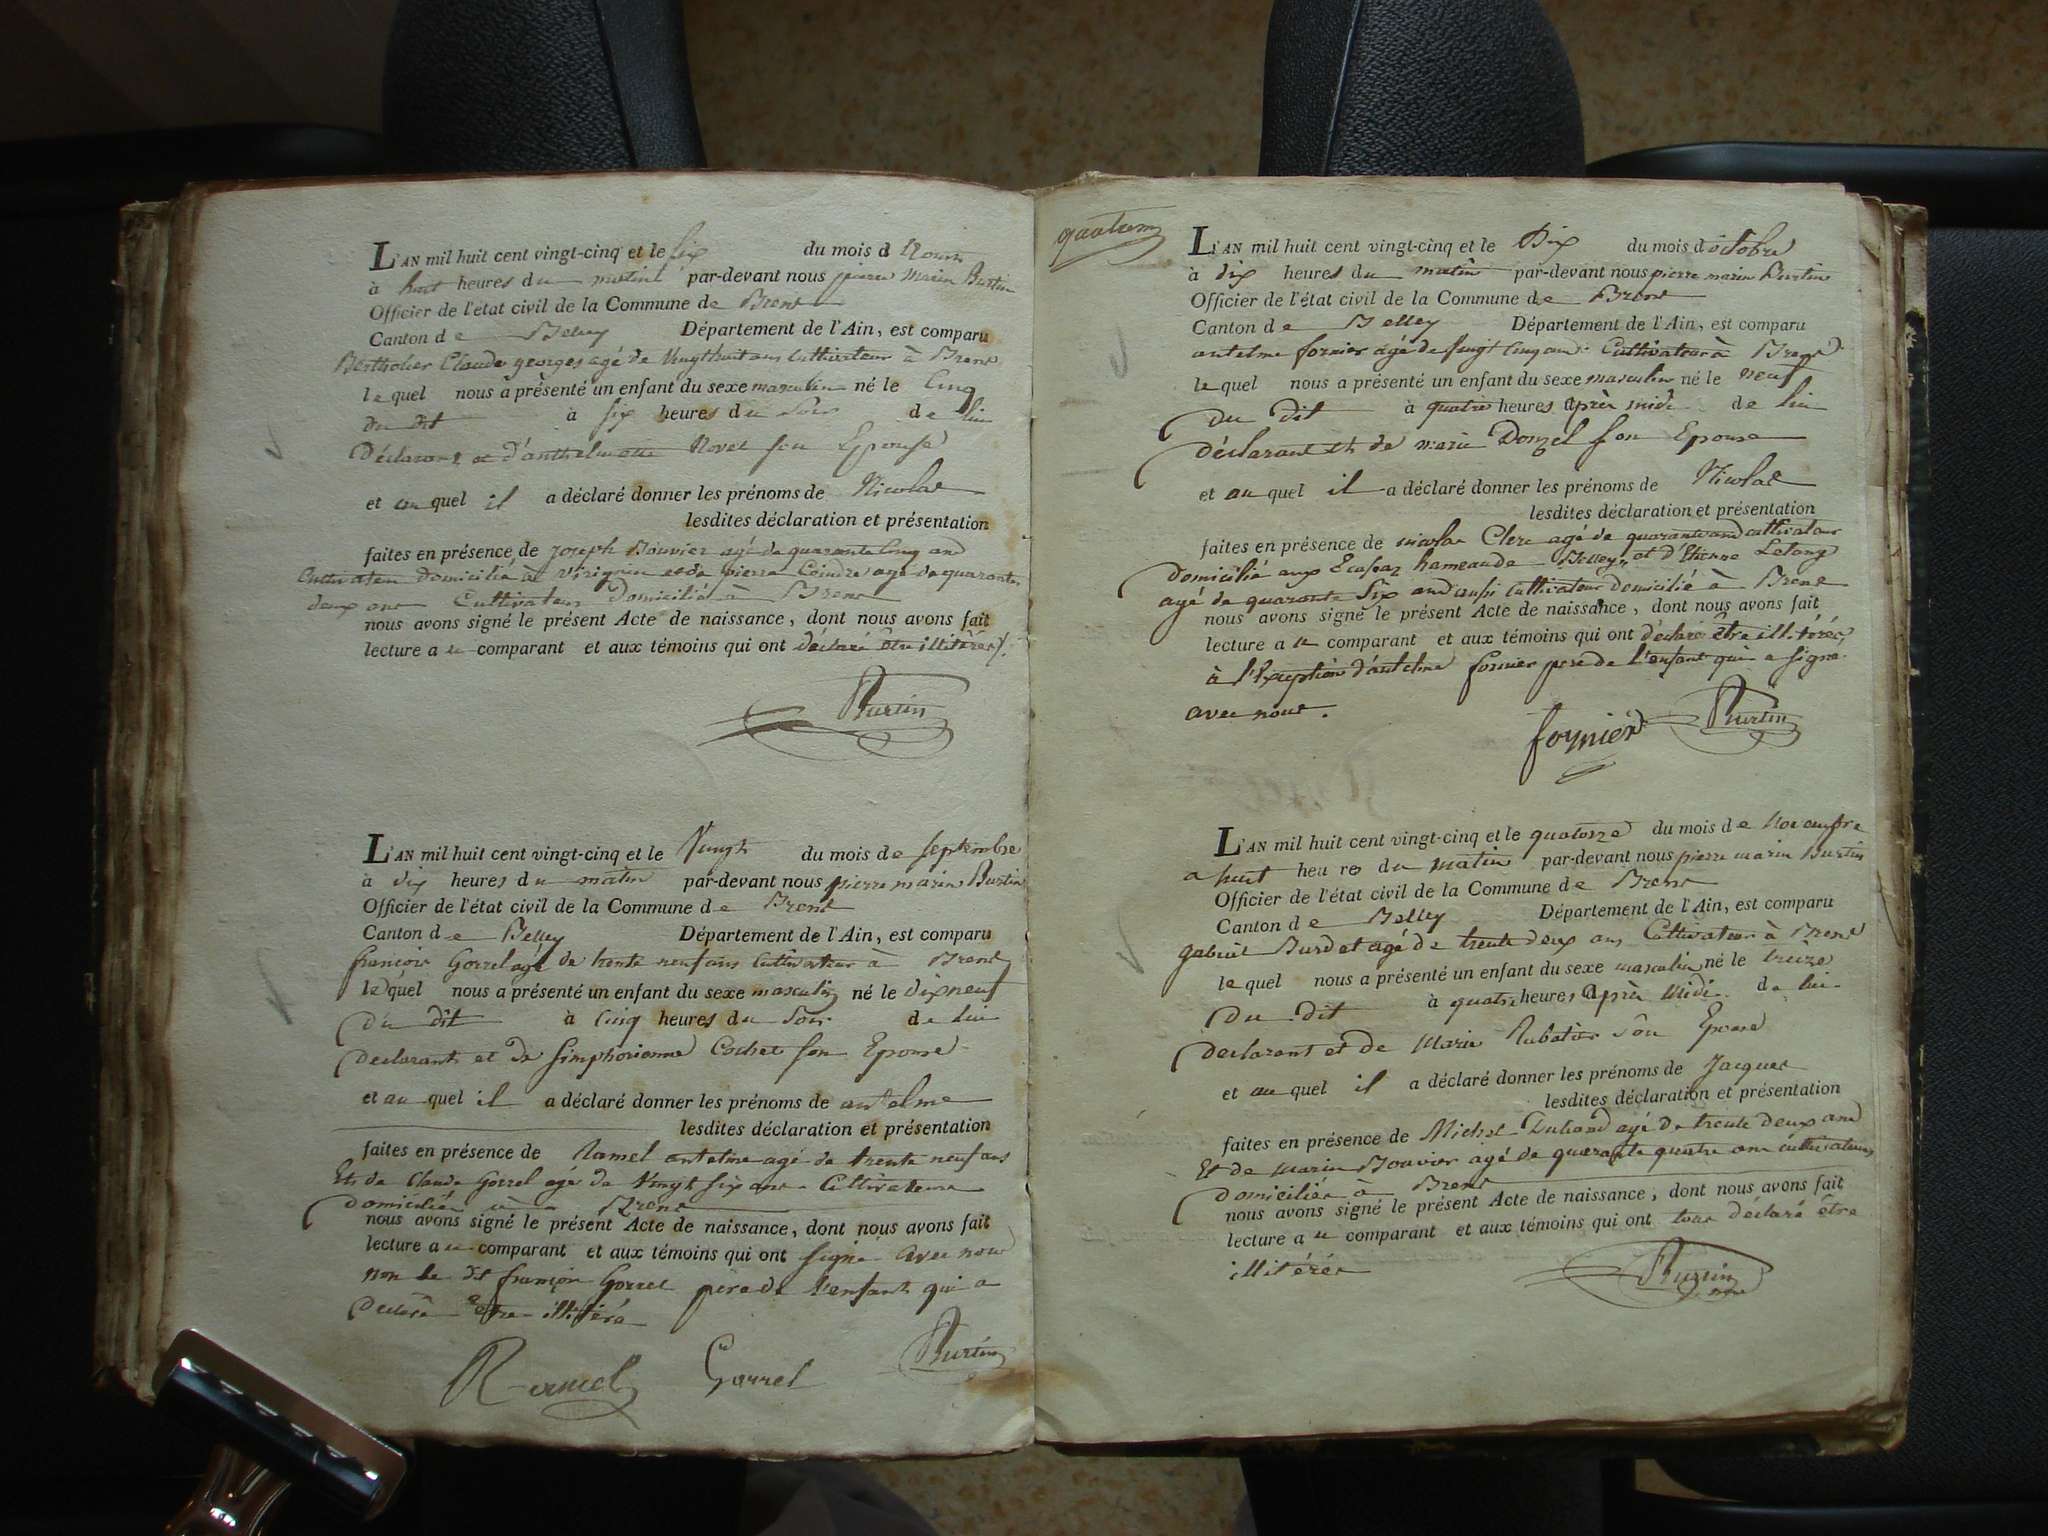 L'AN mil huit cent vingt-cinq et le six du mois d'Aoust
à huit heures du matin par-devant nous pierre Marin Burtin
Officier de l'état civil de la Commune de Brens
Canton de Belley Département de l'Ain, est comparu
Bertholier Claude georges agé de Vingthuit ans Cultivateur à Brens
le quel nous a présenté un enfant du sexe masculin né le Cinq
du dit à six heures du soir de lui
Déclarant et d'anthelmette Novet son Epouse
et au quel il a déclaré donner les prénoms de Nicolas
lesdites déclaration et présentation
faites en présence de Joseph Bouvier agé de quarante Cinq ans
Cultivateur domicilié à Virignin et de pierre Coindre agé de quarante
deux ans Cultivateur Domicilié à Brens
nous avons signé le présent Acte de naissance, dont nous avons fait
lecture au comparant et aux témoins qui ont déclaré être illitérés.
Burtin
L'AN mil huit cent vingt-cinq et le Vingt du mois de septembre
à dix heures du matin par-devant nous pierre marin Burtin
Officier de l'état civil de la Commune de Brens
Canton de Belley Département de l'Ain, est comparu
françois Gorrel agé de trente neuf ans Cultivateur à Brens
le quel nous a présenté un enfant du sexe masculin né le dixneuf
du dit à Cinq heures du soir de lui
Declarant et de simphorienne Cochet son Epouse
et au quel il a déclaré donner les prénoms de antelme
lesdites déclaration et présentation
faites en présence de Ramel antelme agé de trente neuf ans
Et de Claude Gorrel agé de Vingt six ans Cultivateurs
domiciliés à Brens
nous avons signé le présent Acte de naissance, dont nous avons fait
lecture au comparant et aux témoins qui ont signé avec nous
non le dit françois Gorrel père de l'enfant qui a
Déclaré être illitéré
Ramel Gorrel Burtin
quatrem
L'AN mil huit cent vingt-cinq et le Dix du mois d'octobre
à dix heures du matin par-devant nous pierre marin Burtin
Officier de l'état civil de la Commune de Brens
Canton de Belley Département de l'Ain, est comparu
antelme fornier agé de Vingt Cinq ans Cultivateur à Brens
le quel nous a présenté un enfant du sexe masculin né le neuf
du dit à quatre heures après midi de lui
déclarant et de marie Donzel son Epouse
et au quel il a déclaré donner les prénoms de Nicolas
lesdites déclaration et présentation
faites en présence de nicolas Clerc agé de quarante ans cultivateur
domicilié aux Ecassaz hameau de Belley, et d'Etienne Lelong
agé de quarante six ans aussi Cultivateur domicilié à Brens
nous avons signé le présent Acte de naissance, dont nous avons fait
lecture au comparant et aux témoins qui ont déclaré être illitérés,
à l'Exception d'antelme fornier pere de l'enfant qui a signé
avec nous.
fornier Burtin
L'AN mil huit cent vingt-cinq et le quatorze du mois de novembre
a huit heures du matin par-devant nous pierre marin Burtin
Officier de l'état civil de la Commune de Brens
Canton de Belley Département de l'Ain, est comparu
gabriel Burdet agé de trente deux ans Cultivateur à Brens
le quel nous a présenté un enfant du sexe masculin né le treize
du dit à quatre heures après Midi de lui
déclarant et de Marie Rubatier son Epouse
et au quel il a déclaré donner les prénoms de Jacques
lesdites déclaration et présentation
faites en présence de Michel Durand agé de trente deux ans
Et de Marin Bouvier agé de quarante quatre ans cultivateurs
domiciliés à Brens
nous avons signé le présent Acte de naissance, dont nous avons fait
lecture au comparant et aux témoins qui ont tous déclaré être
illitérés
Burtin